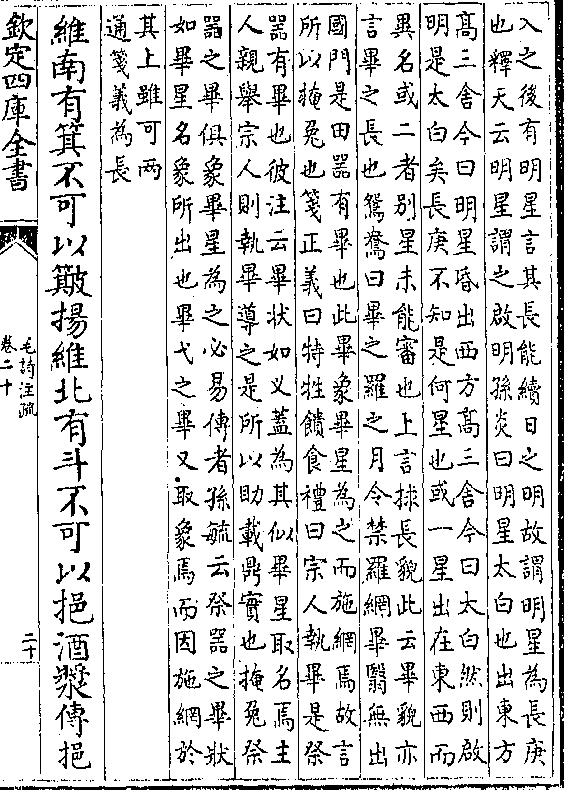 入之後有明星言其長能續日之明故謂明星為長庚
也釋天云明星謂之啟明孫炎曰明星太白也出東方
髙三舍今曰明星昏出西方髙三舍今曰太白然則啟
明是太白矣長庚不知是何星也或一星出在東西而
異名或二者別星未能審也上言捄長貌此云畢貌亦
言畢之長也鴛鴦曰畢之羅之月令禁羅網畢翳無出
國門是田器有畢也此畢象畢星為之而施網焉故言
所以掩兔也箋正義曰特牲饋食禮曰宗人執畢是祭
器有畢也彼注云畢狀如乂蓋為其似畢星取名焉主
人親舉宗人則執畢導之是所以助載鼎實也掩兔祭
器之畢俱象畢星為之必易傳者孫毓云祭器之畢狀
如畢星名象所出也畢弋之畢又取象焉而因施網於
其上雖可两
通箋義為長
維南有箕不可以簸揚維北有斗不可以挹酒漿傳挹
欽定四庫全書
毛詩注疏
卷二十
二十